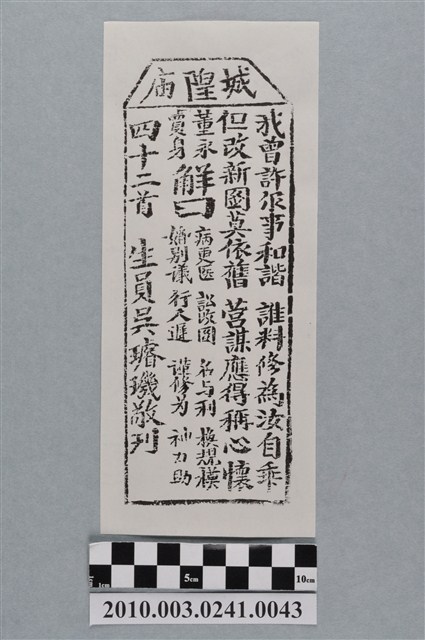 城隍庙
我曾許你事和諧 誰料修為汝自乖
但改新圖莫依舊 營謀應得稱心懷
董永賣身
解曰
病更医 訟改圖 名与利 換規模
婚別議 行人遲 謹修为 神力助
四十二首 生員吳璿璣敬刊
1cm 5cm 10cm
2010.003.0241.0043